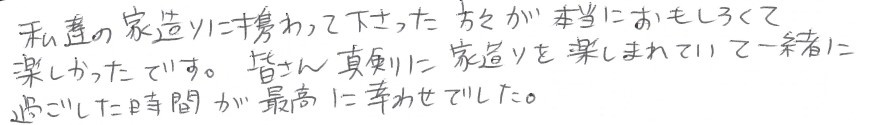 私達の家造りに携わって下さった方々が本当におもしろくて
楽しかったです。皆さん真剣に家造りを楽しまれていて一緒に
過ごした時間が最高に幸わせでした。